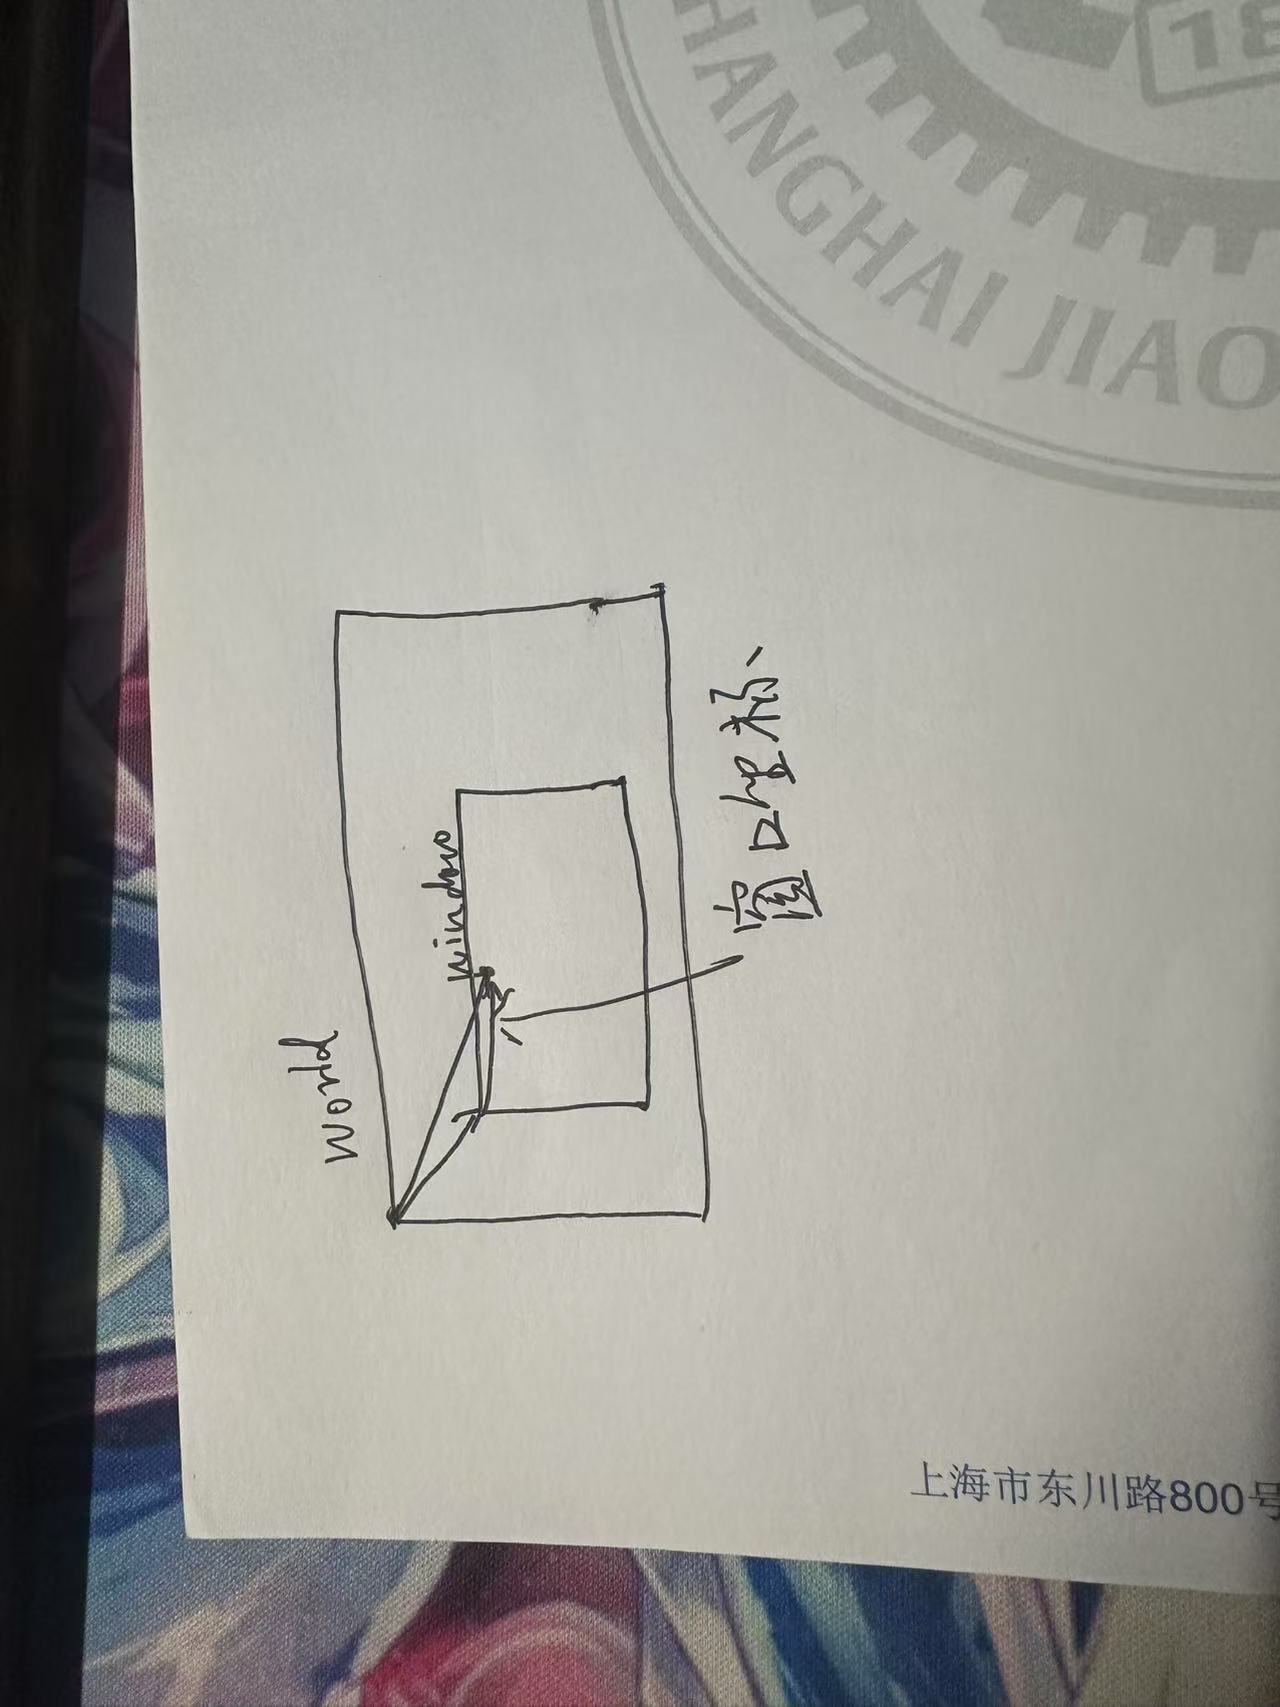 18
HANGHAI JIAO
world
window
窗口坐标
上海市东川路800号